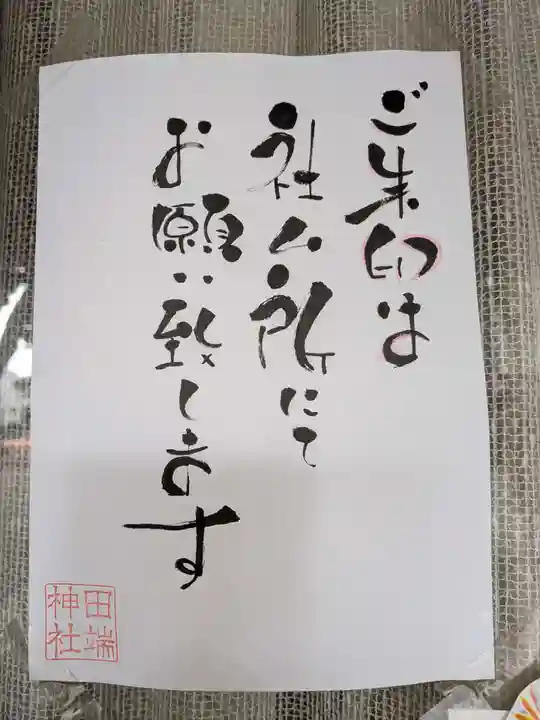 ご朱印は
社ム所にて
お願い致します
田端
神社